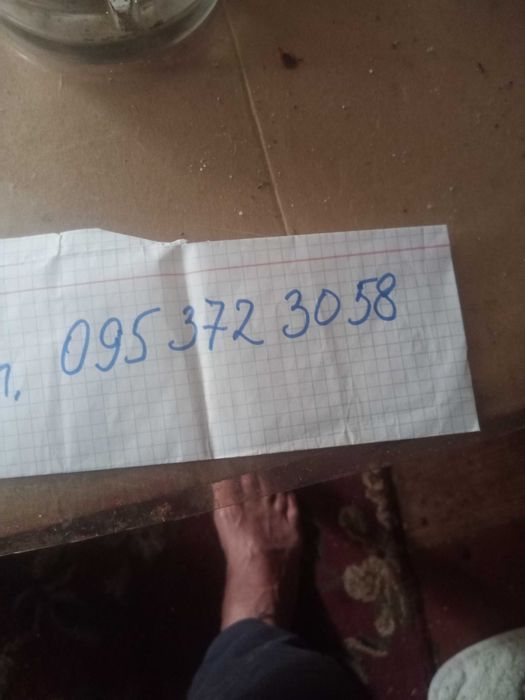 095 372 30 58